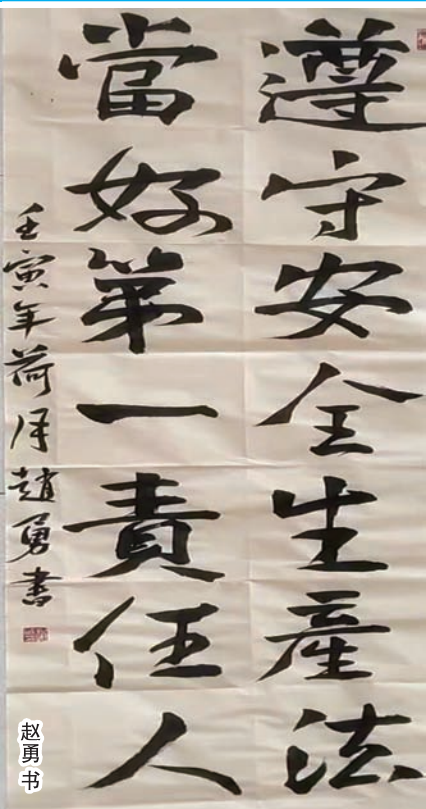 遵守安全生產法
當好第一責任人
壬寅年荷月趙勇書
赵勇书